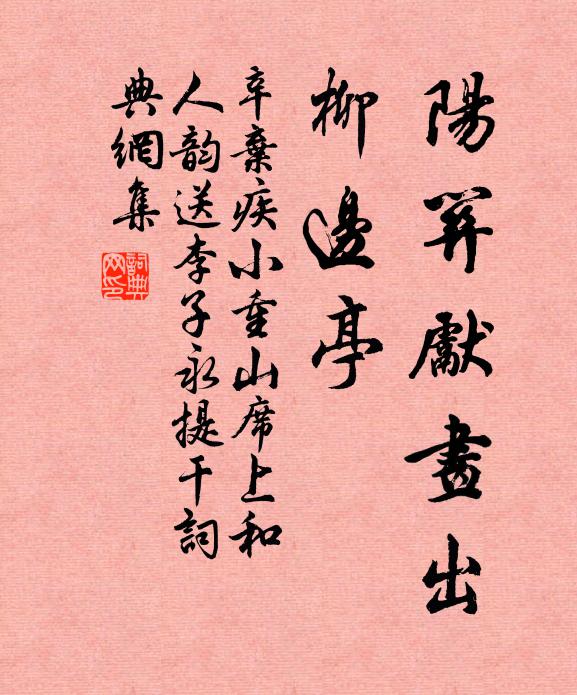 陽关獻畫出
柳邊亭
辛棄疾小重山席上和
人韵送李子永提干詞
典網集
詞典
网印